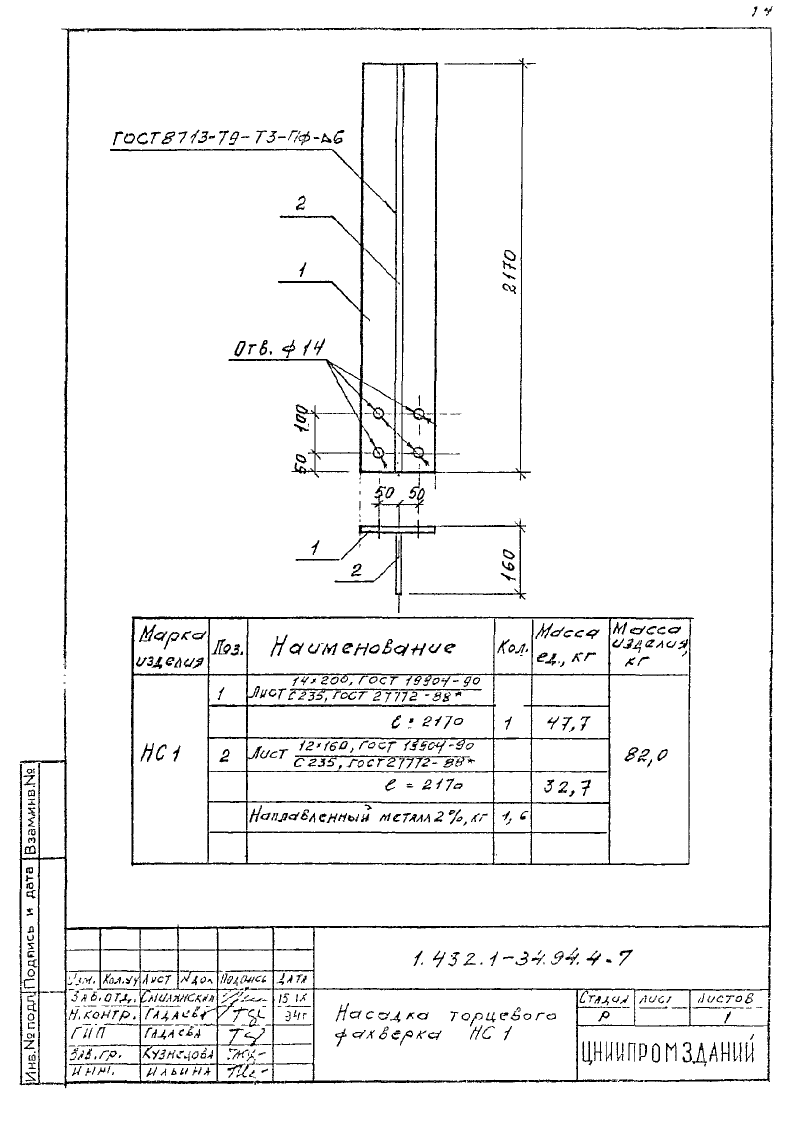 14
ГОСТ 8713-79-Т3-Пф-△6
2
1
Отв. ф 14
2170
100
50
50 50
1
2
160
Марка изделия
Поз.
Наименование
Кол.
Масса ед., кг
Масса изделия, кг
НС1
1 Лист 14×200, ГОСТ 19904-90
С235, ГОСТ 27772-88*
ℓ = 2170 1 47,7
82,0
2 Лист 12×160, ГОСТ 19904-90
С235, ГОСТ 27772-88*
ℓ = 2170 32,7
Наплавленный металл 2%, кг 1,6
Взам.инв.№
Подпись и дата
Инв.№ подл.
1.432.1-34.94.4-7
Изм. Кол.уч Лист №док Подпись Дата
Зав.отд. Смилянский 15 IX
Н.контр. Гадаева 94г
ГИП Гадаева
Зав.гр. Кузнецова
Инж. Ильина
Насадка торцевого
фахверка НС1
Стадия Лист Листов
Р 1
ЦНИИПРОМЗДАНИЙ